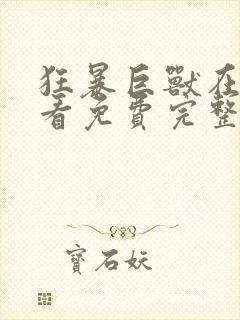 狂暴巨獸在
看免費完整
寶石妖